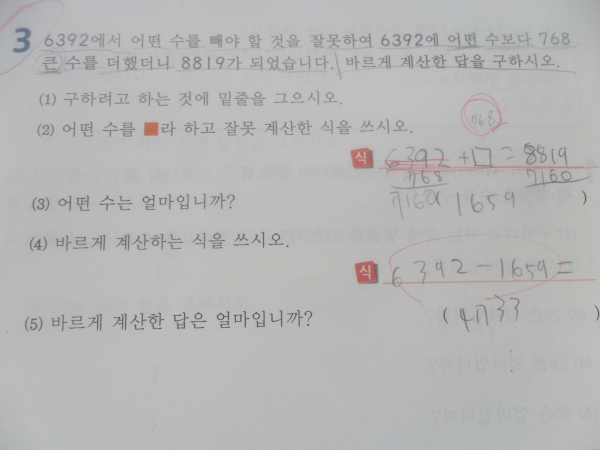 3 6392에서 어떤 수를 빼야 할 것을 잘못하여 6392에 어떤 수보다 768
큰 수를 더했더니 8819가 되었습니다. 바르게 계산한 답을 구하시오.
(1) 구하려고 하는 것에 밑줄을 그으시오.
(2) 어떤 수를 ■라 하고 잘못 계산한 식을 쓰시오.
768
식 6392+□=8819
768 7160
7160 1659 )
(3) 어떤 수는 얼마입니까?
(4) 바르게 계산하는 식을 쓰시오.
식 6392-1659=
(5) 바르게 계산한 답은 얼마입니까?
( 4733